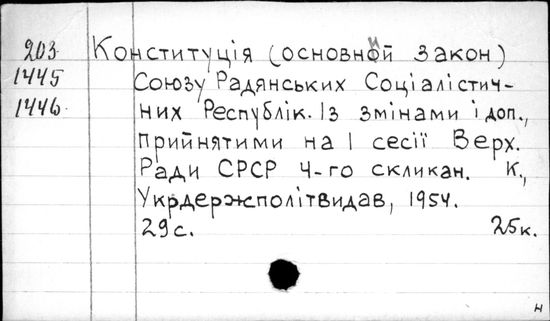 203 Конституція (основний закон)
1445 Союзу Радянських Соціалістич-
1446 них Республік. Із змінами і доп.,
прийнятими на I сесії Верх.
Ради СРСР 4-го скликан. К.,
Укрдержполітвидав, 1954.
29 с. 25к.
н